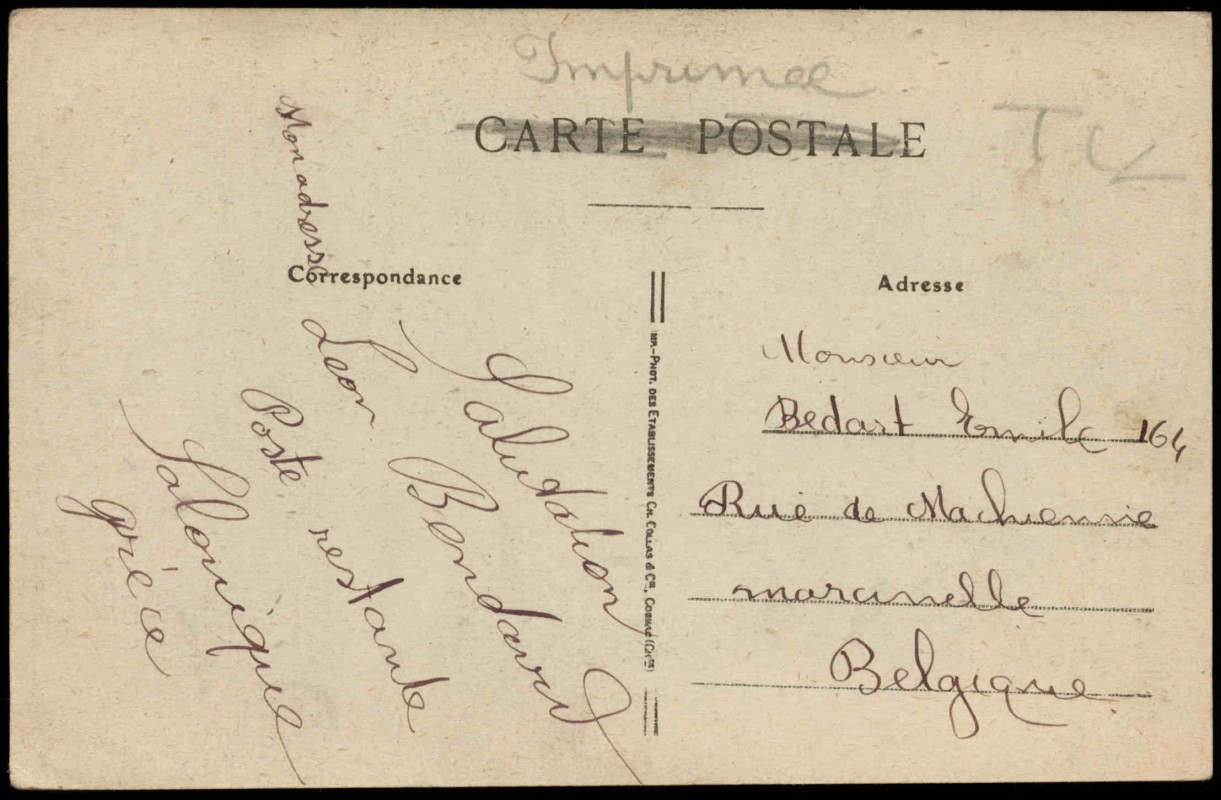 Imprimee
CARTE POSTALE
Correspondance
Adresse
Mon adresse
Salutation
Leon Bendavid
Poste restante
Salonique
grèce
IMP.-PHOT. DES ETABLISSEMENTS CH. COLLAS & Cie, COGNAC (Chte)
Monsieur
Bedart Emile 164
Rue de Machienne
marcinelle
Belgique